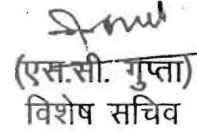 (एस.सी. गुप्ता)
विशेष सचिव